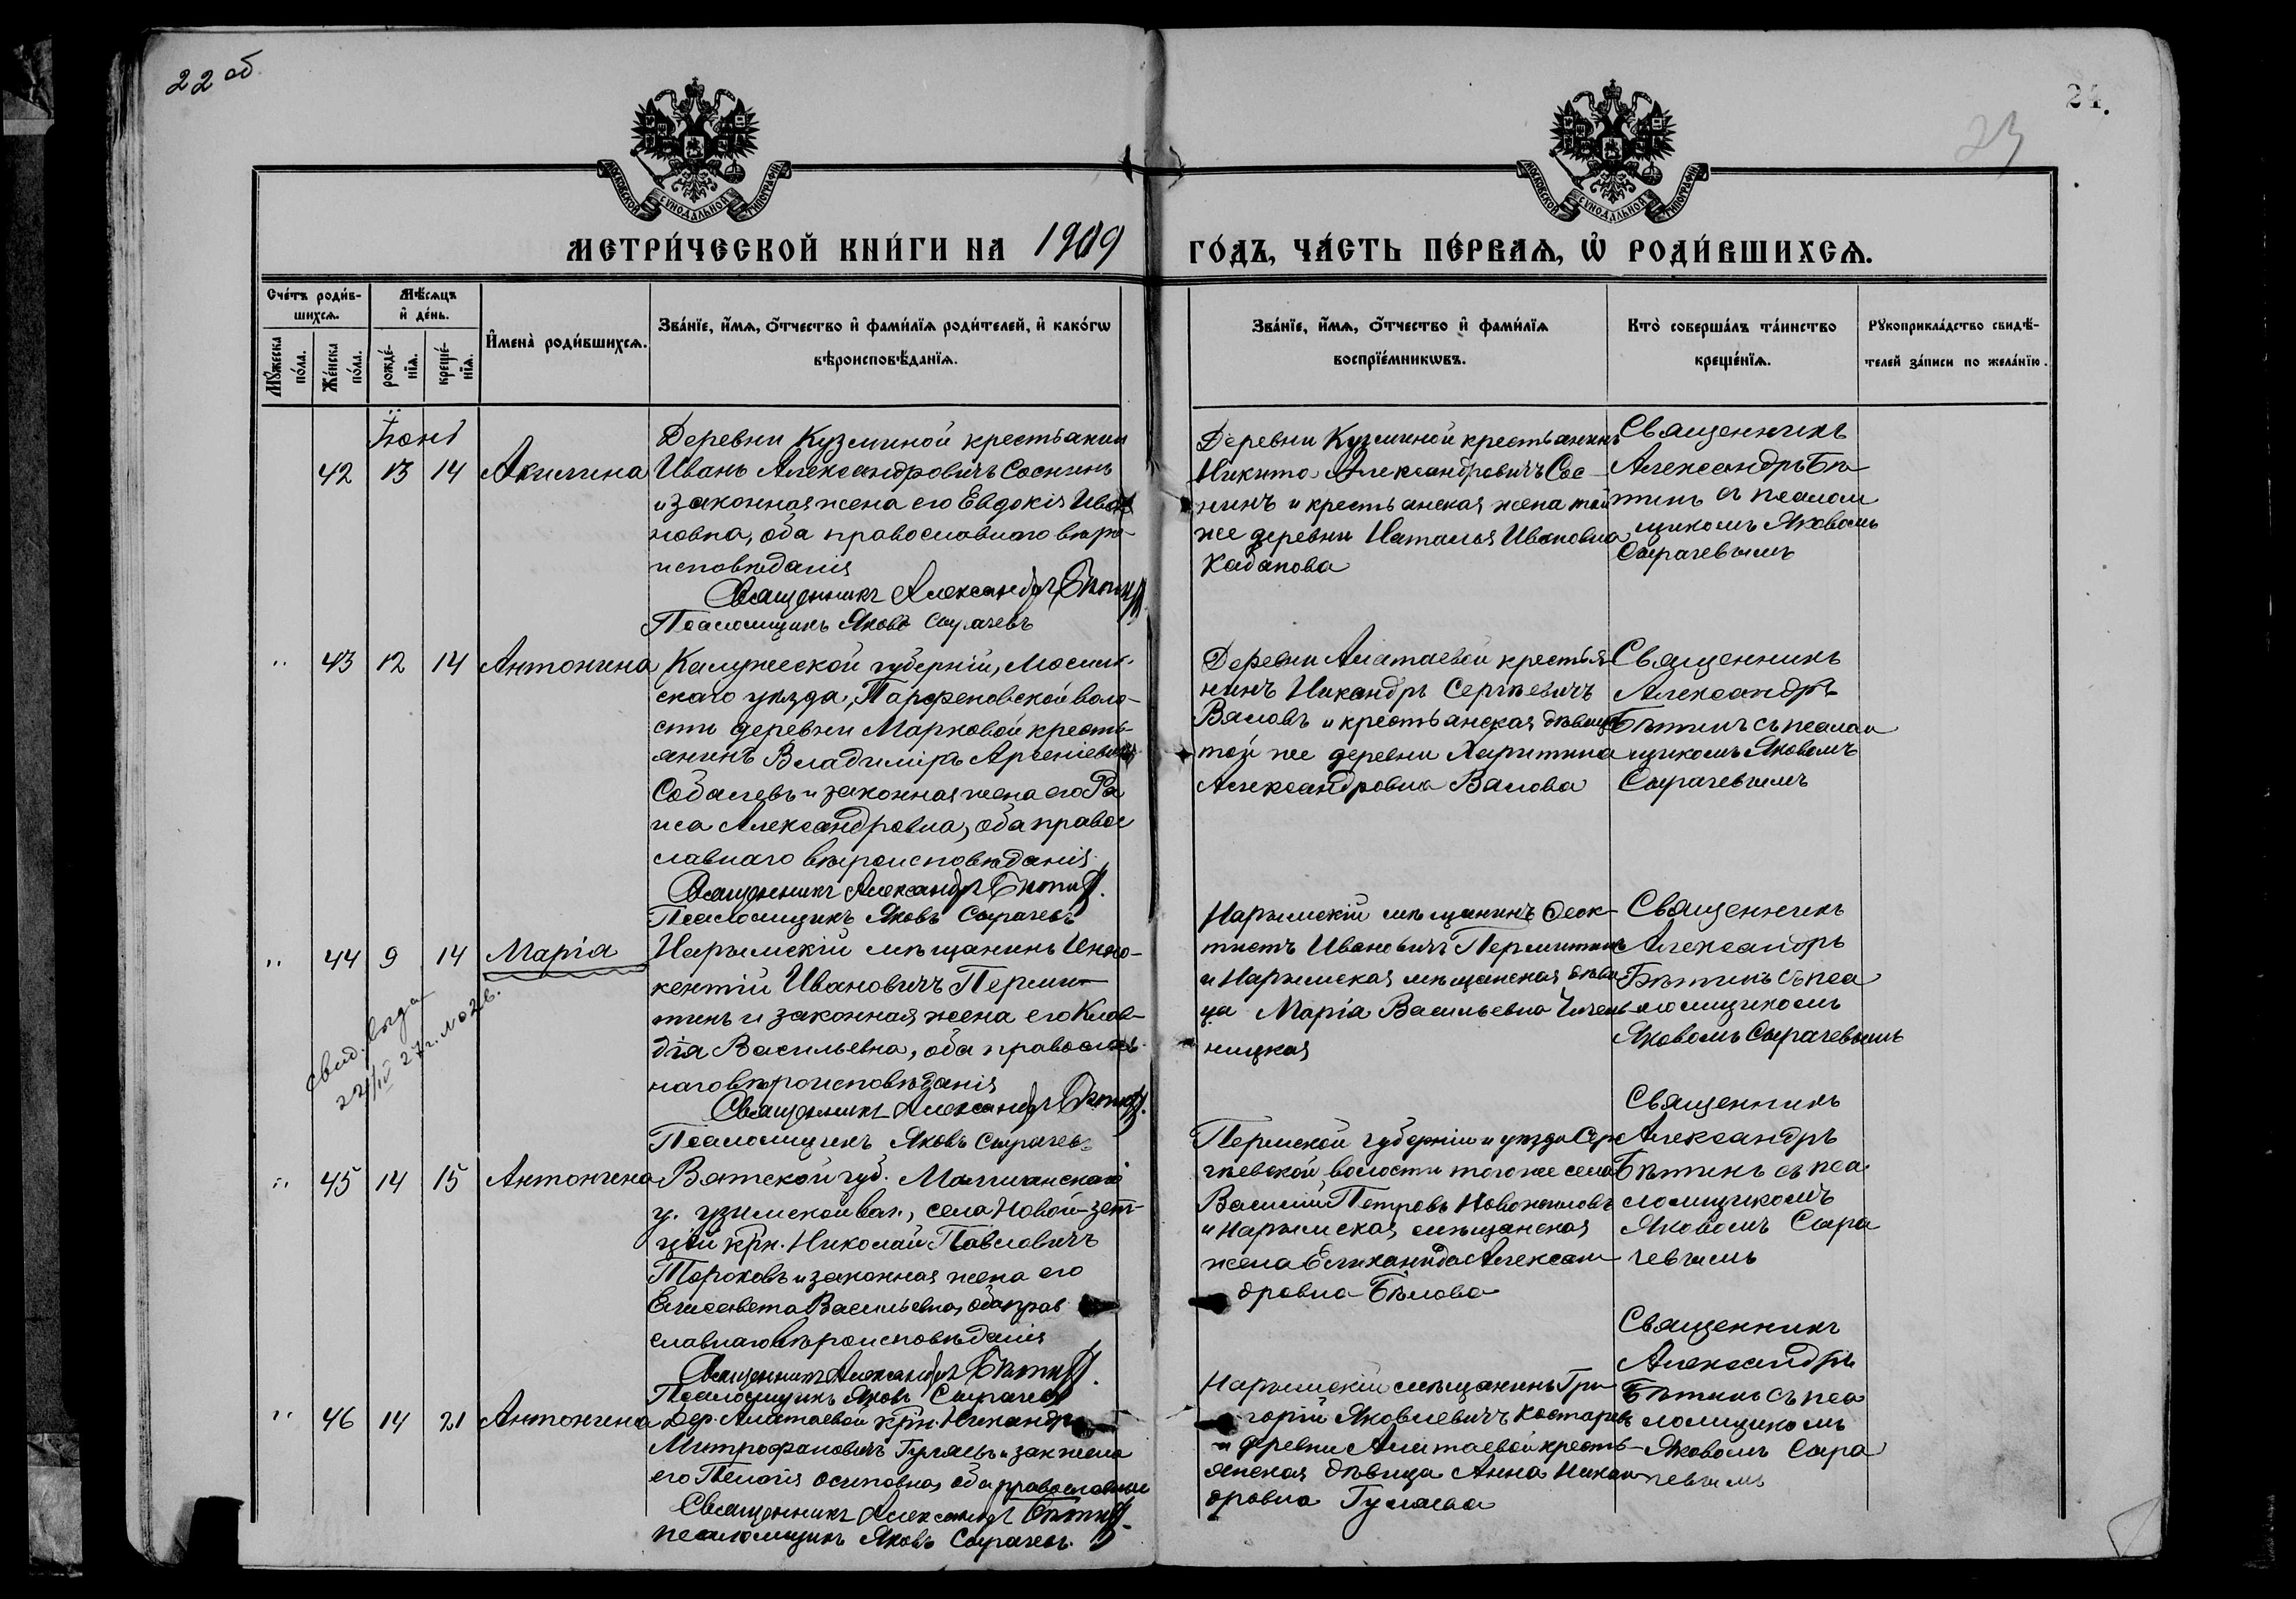 22 об
24.
23
МОСКОВСКОЙ СѴНОДАЛЬНОЙ ТИПОГРАФІИ
МОСКОВСКОЙ СѴНОДАЛЬНОЙ ТИПОГРАФІИ
МЕТРИ́ЧЕСКОЙ КНИ́ГИ НА 1909
ГО́ДЪ, ЧА́СТЬ ПЕ́РВАѦ, Ѡ҆ РОДИ́ВШИХСѦ.
Сче́тъ роди́в-
шихсѧ.
Мѣ́сѧцъ
и҆ де́нь.
И҆мена̀ роди́вшихсѧ.
Зва́нїе, и҆́мѧ, ѻ҆́тчество и҆ фами́лїѧ роди́телей, и҆ како́гѡ
вѣроисповѣ́данїѧ.
Мꙋ́жеска
по́ла.
Же́нска
по́ла.
рожде́-
нїѧ.
креще́-
нїѧ.
Зва́нїе, и҆́мѧ, ѻ҆́тчество и҆ фами́лїѧ
воспрїе́мникѡвъ.
Кто̀ соверша́лъ та́инство
креще́нїѧ.
Рꙋкоприкла́дство свидѣ́-
телей за́писи по жела́нїю.
Іюнь
42 13 14 Акилина
Деревни Кузминой крестьянин
Иванъ Александровичъ Соснинъ
и законная жена его Евдокія Ива
новна, оба православнаго вѣро-
исповѣданія
Священникъ Александръ Бѣтинъ.
Псаломщикъ Яковъ Сырачевъ
Деревни Кузминой крестьянинъ
Никита Александровичъ Сос-
нинъ и крестьянская жена той
же деревни Наталья Ивановна
Кабанова
Священникъ
Александръ Бѣ
тинъ съ псалом
щикомъ Яковомъ
Сырачевымъ
" 43 12 14 Антонина
Калужской губерніи, Мосаль-
скаго уѣзда, Парфеновской воло-
сти деревни Марковой кресть-
янинъ Владиміръ Арсеніевичъ
Соболевъ и законная жена его Ра
иса Александровна, оба правос
славнаго вѣроисповѣданія.
Священникъ Александръ Бѣтинъ.
Псаломщикъ Яковъ Сырачевъ
Деревни Алатаевой крестья
нинъ Никандръ Сергѣевичъ
Валовъ и крестьянская дѣвица
той же деревни Харитина
Александровна Валова
Священникъ
Александръ
Бѣтинъ съ псалом
щикомъ Яковомъ
Сырачевымъ
" 44 9 14 Марія
свид. выда
22/IV 27 г. № 26.
Нарымскій мѣщанинъ Инно-
кентій Ивановичъ Перми-
тинъ и законная жена его Клав-
дія Васильевна, оба православ-
наго вѣроисповѣданія
Священникъ Александръ Бѣтинъ.
Псаломщикъ Яковъ Сырачевъ
Нарымскій мѣщанинъ Ѳеок-
тистъ Ивановичъ Пермитинъ
и Нарымская мѣщанская дѣви
ца Марія Васильевна
ницкая
Священникъ
Александръ
Бѣтинъ съ пса
ломщикомъ
Яковомъ Сырачевымъ
" 45 14 15 Антонина
Вятской губ. Малмыжскаго
у. узимской вол., села Новой-
цій крн. Николай Павловичъ
Тороховъ и законная жена его
Елисавета Васильевна, оба прав
славнаго вѣроисповѣданія
Священникъ Александръ Бѣтинъ.
Псаломщикъ Яковъ Сырачевъ
Пермской губерніи и уѣзда Сер
гіевской волости того же села
Василій Петровъ Новожиловъ
и Нарымская мѣщанская
жена Еликанида Алексан
дровна Бѣлова
Священникъ
Александръ
Бѣтинъ съ пса
ломщикомъ
Яковомъ Сыра
чевымъ
" 46 14 21 Антонина
Дер. Алатаевой крн. Никандръ
Митрофановичъ Гуляевъ и зак жена
его Пелагія Осиповна, оба православные
Священникъ Александръ Бѣтинъ.
псаломщикъ Яковъ Сырачевъ.
Нарымскій мѣщанинъ Гри
горій Яковлевичъ Костаревъ
и деревни Алатаевой кресть-
янская дѣвица Анна Никан
дровна Гуляева
Священникъ
Александръ
Бѣтинъ съ пса
ломщикомъ
Яковомъ Сыра
чевымъ